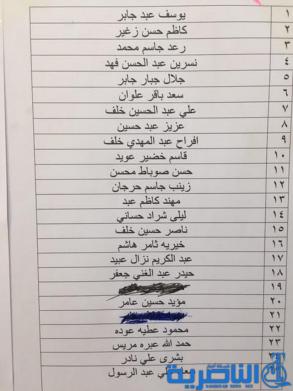 ١ يوسف عبد جابر
٢ كاظم حسن زغير
٣ رعد جاسم محمد
٤ نسرين عبد الحسن فهد
٥ جلال جبار جابر
٦ سعد باقر علوان
٧ علي عبد الحسين خلف
٨ عزيز عبد حسين
٩ افراح عبد المهدي خلف
١٠ قاسم خضير عويد
١١ حسن صوباط محسن
١٢ زينب جاسم حرجان
١٣ مهند كاظم عبد
١٤ ليلى شراد حساني
١٥ ناصر حسين خلف
١٦ خيريه ثامر هاشم
١٧ عبد الكريم نزال عبيد
١٨ حيدر عبد الغني جعفر
١٩
٢٠ مؤيد حسين عامر
٢١
٢٢ محمود عطيه عوده
٢٣ حمد الله عبره مريس
بشرى علي نادر
علي عبد الرسول
الناصرية